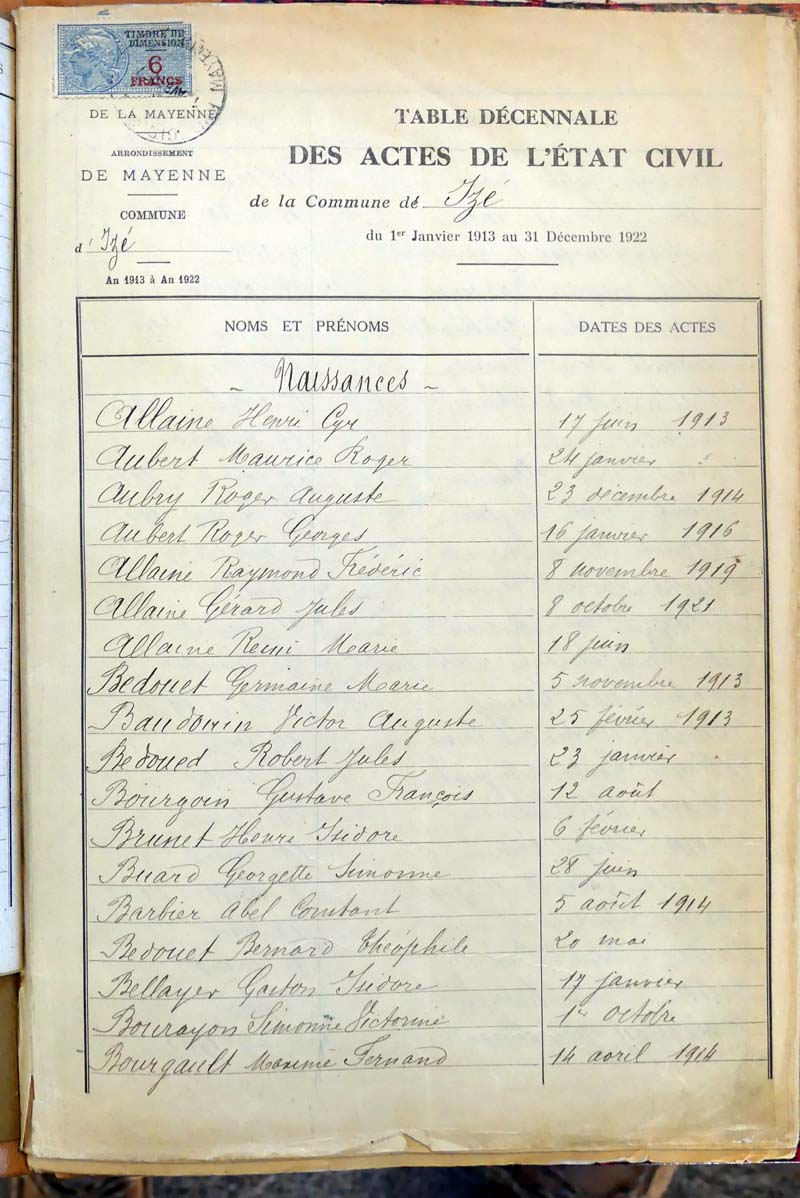 TIMBRE DE
DIMENSION
6
FRANCS
DE LA MAYENNE
ARRONDISSEMENT
DE MAYENNE
COMMUNE
d' Izé
An 1913 à An 1922
TABLE DÉCENNALE
DES ACTES DE L'ÉTAT CIVIL
de la Commune dé Izé
du 1er Janvier 1913 au 31 Décembre 1922
NOMS ET PRÉNOMS DATES DES ACTES
~ Naissances ~
Allaine Henri Cyr 17 juin 1913
Aubert Maurice Roger 24 janvier "
Aubry Roger Auguste 23 décembre 1914
Aubert Roger Georges 16 janvier 1916
Allaine Raymond Frédéric 8 novembre 1919
Allaine Gérard Jules 8 octobre 1921
Allaine Remi Marie 18 juin
Bedouet Germaine Marie 5 novembre 1913
Baudouin Victor Auguste 25 février 1913
Bedoued Robert Jules 23 janvier "
Bourgoin Gustave François 12 août
Brunet Henri Isidore 6 février
Buard Georgette Simonne 28 juin
Barbier Abel Constant 5 août 1914
Bedouet Bernard Théophile 20 mai
Bellayer Gaston Isidore 17 janvier
Bourayon Simonne Victorine 1er octobre
Bourgault Maxime Fernand 14 avril 1914